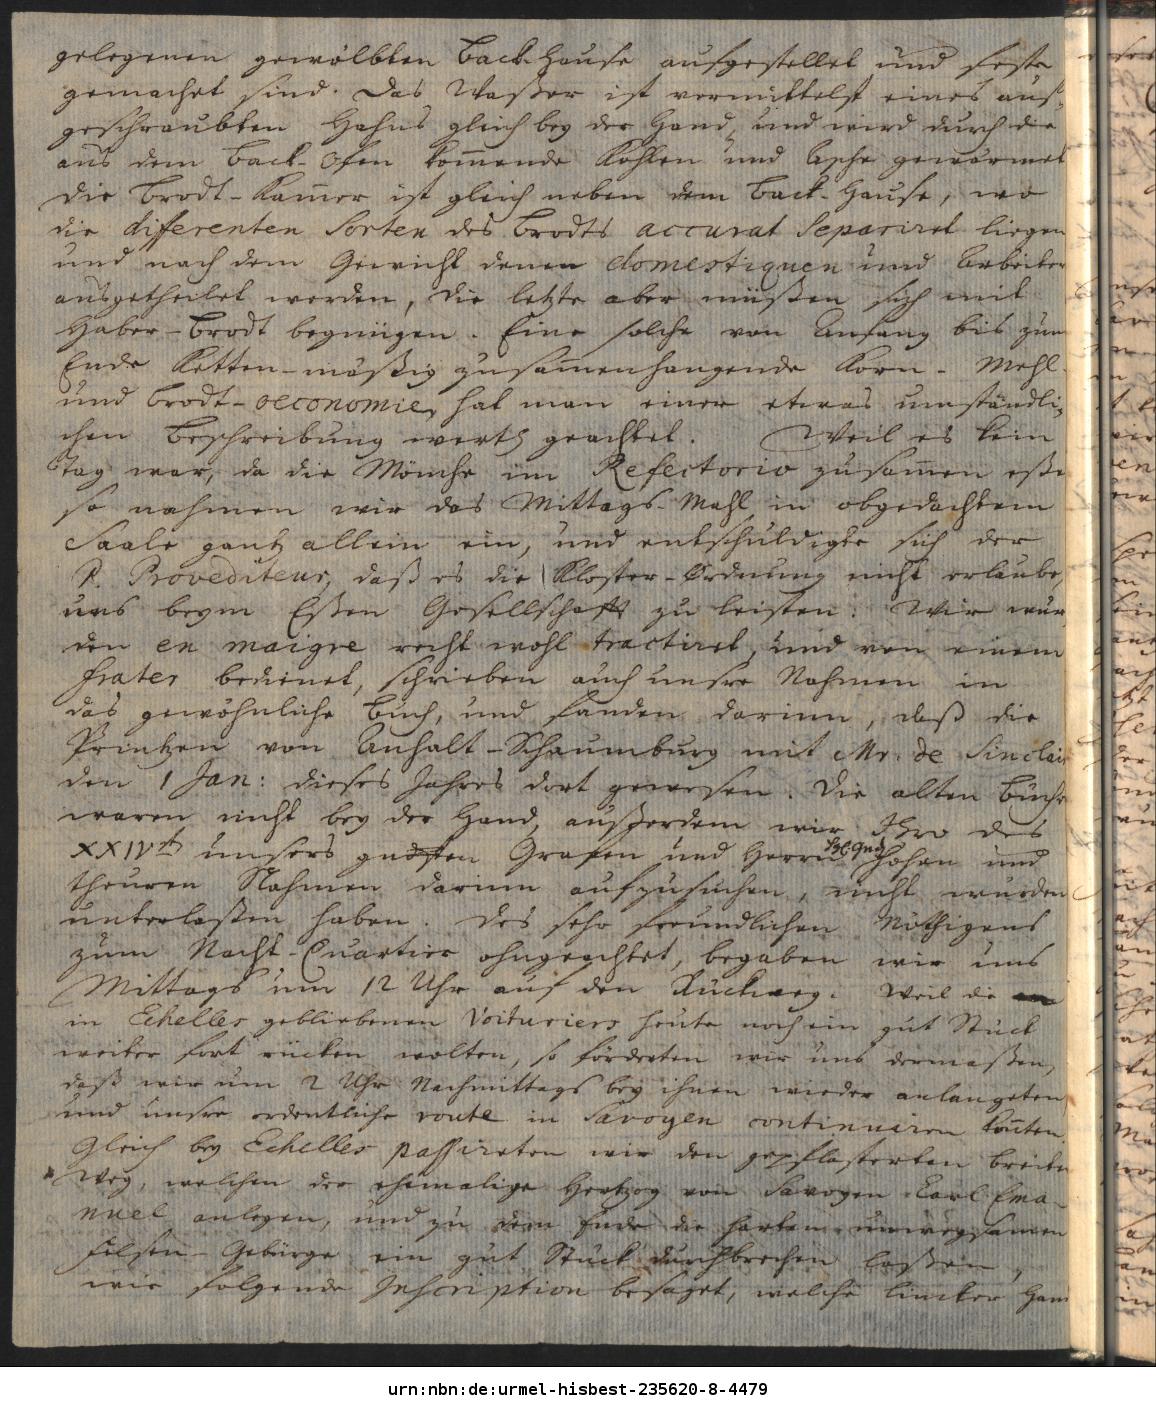 gelegenen gewölbten Back-Hause aufgestellet und feste
gemachet sind. Das Waßer ist vermittelst eines auf-
geschraubten Hahns gleich bey der Hand, und wird durch die
aus dem Back-Ofen kom̄ende Kohlen und Asche gewärmet
Die Brodt-Kam̄er ist gleich neben dem Back-Hause, wo
die differenten Sorten des Brodts accurat separiret liegen
und nach dem Gewicht denen domestiquen und Arbeiter
ausgetheilet werden, die letzte aber müßen sich mit
Haber-Brodt begnügen. Eine solche von Anfang bis zum
Ende Ketten-mäßig zusam̄enhangende Korn- Mehl-
und Brodt-oeconomie, hat man einer etwas umständli-
chen Beschreibung werth geachtet. Weil es kein
Tag war, da die Mönche im Refectorio zusam̄en eßen
so nahmen wir das Mittags-Mahl in obgedachtem
Saale gantz allein ein, und entschuldigte sich der
P. Provediteur, daß es die Kloster-Ordnung nicht erlaube,
uns beym Eßen Gesellschafft zu leisten. Wir wur-
den en maigre recht wohl tractiret, und von einem
frater bedienet, schrieben auch unsre Nahmen in
das gewöhnliche Buch, und fanden darinn, daß die
Printzen von Anhalt-Schaumburg mit Mr. de Sinclair
den 1 Jan: dieses Jahres dort gewesen. Die alten Bücher
waren nicht bey der Hand, außerdem wir Ihro des
XXIVt. unsers gndsten Grafen und Herrn Hochgräfl Johan und
theuren Nahmen darinn aufzusuchen, nicht würden
unterlaßen haben. Des sehr freundlichen Nöthigens
zum Nacht-Quartier ohngeachtet, begaben wir uns
Mittags um 12 Uhr auf den Rückweg. Weil die
in Echelles gebliebenen Voituriers heute noch ein gut Stück
weiter fort rücken wolten, so förderten wir uns dermaßen,
daß wir um 2 Uhr Nachmittags bey ihnen wieder anlangeten
und unsre ordentliche route in Savoyen continuiren kon̄ten.
Gleich bey Echelles passireten wir den gepflasterten breiten
Weg, welchen der ehemalige Hertzog von Savoyen Carl Ema-
nuel anlegen, und zu dem Ende die harten unwegsamen
Felsen-Gebürge ein gut Stück durchbrechen laßen,
wie folgende Inscription besaget, welche lincker Hand